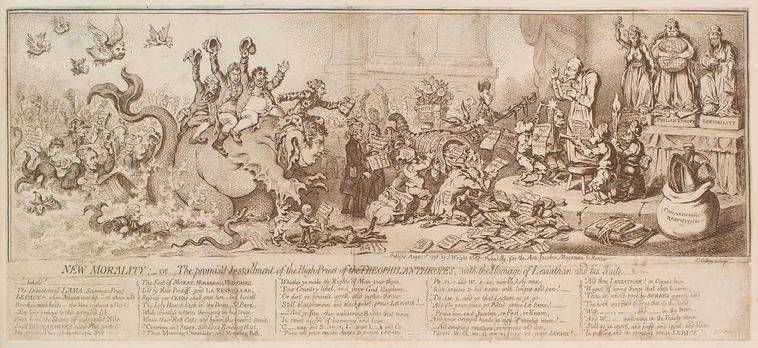 PHILANTHROPY
SENSIBILITY
Philanthropic
Requisition
Publish'd August 1st 1798 by J. Wright No 169 Piccadilly, for the Anti-Jacobin Magazine & Review
NEW MORALITY; — or — The promis'd Installment of the High-Priest of the THEOPHILANTHROPES, with the Homage of Leviathan and his Suite.
behold!
The Directorial LAMA, Sovereign Priest —
LEPAUX — whom Atheists worship — at whose nod
Bow their meek heads — the Men without a God!
Ere long perhaps to this astonish'd Isle
Fresh from the Shores of subjugated Nile
Shall BUONAPARTE'S victor Fleet protect
The genuine Theo-philanthropic Sect
The Sect of MARAT, MIRABEAU, VOLTAIRE,
Led by their Pontiff, good LA REVEILLERE;
Rejoic'd our CLUBS shall greet him, and Install
The holy Hunch-back in thy Dome, St Paul,
While countless votaries thronging in his train
Wave their Red Caps, and hymn this jocund strain:
"Couriers and Stars, Sedition's Evening Host,
"Thou Morning Chronicle, and Morning Post,
Whether ye make the Rights of Man your theme,
Your Country libel, and your God blaspheme,
Or dirt on private worth and virtue throw
Still blasphemous or blackguard, praise LEPAUX!
And ye five other wandering Bards that move
In sweet accord of harmony and love,
Tune all your mystic harps to praise LEPAUX!
humble, holy men,
Give praise to him with tongue and pen!
And for your pains get Pelted, praise LEPAUX!
Praise him each Jacobin, or Fool, or Knave,
And your cropp'd heads in sign of worship wave!
All creeping creatures, venomous and low,
praise LEPAUX!
And thou LEVIATHAN! on Ocean's brim
Hugest of living things that sleep & swim;
Thou, in whose nose by BURKE'S gigantic hand
The hook was fix'd to drag thee to the land
With
in thy train
And
wallowing in the Yeasty main
Still as ye snort, and puff, and spout, and blow,
In puffing, and in spouting, praise LEPAUX!